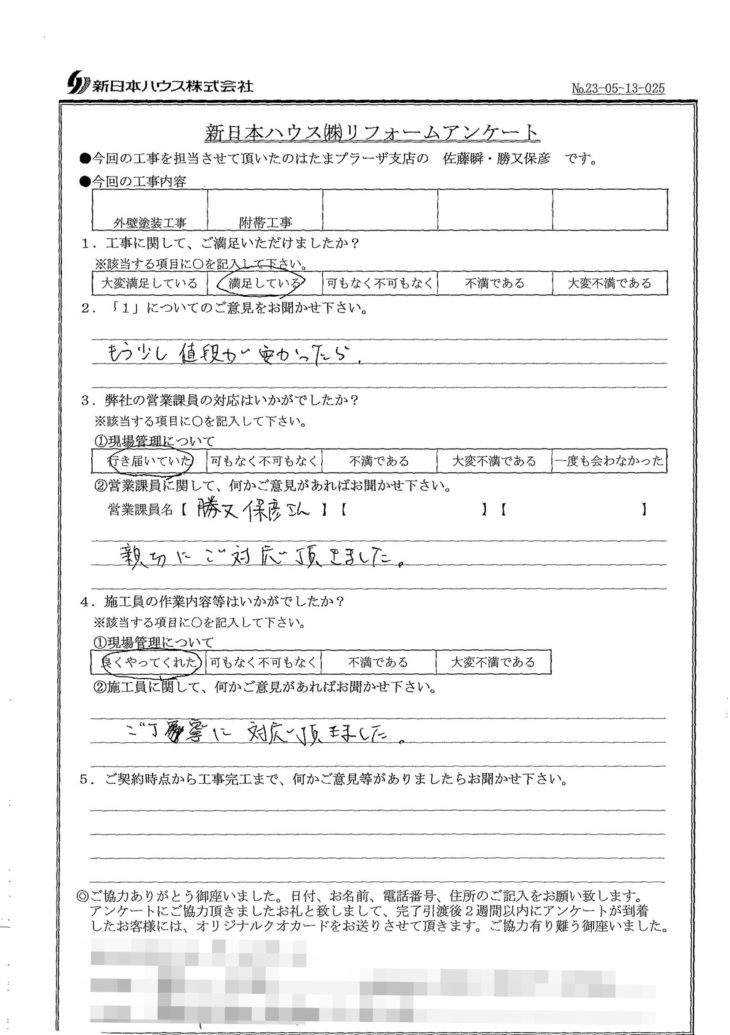 新日本ハウス株式会社
№23-05-13-025
新日本ハウス㈱リフォームアンケート
●今回の工事を担当させて頂いたのはたまプラーザ支店の 佐藤瞬・勝又保彦 です。
●今回の工事内容
外壁塗装工事 附帯工事
1．工事に関して、ご満足いただけましたか？
※該当する項目に○を記入して下さい。
大変満足している 満足している 可もなく不可もなく 不満である 大変不満である
2．「1」についてのご意見をお聞かせ下さい。
もう少し値段が安かったら．
3．弊社の営業課員の対応はいかがでしたか？
※該当する項目に○を記入して下さい。
①現場管理について
行き届いていた 可もなく不可もなく 不満である 大変不満である 一度も会わなかった
②営業課員に関して、何かご意見があればお聞かせ下さい。
営業課員名【 勝又保彦さん 】【 】【 】
親切にご対応頂きました。
4．施工員の作業内容等はいかがでしたか？
※該当する項目に○を記入して下さい。
①現場管理について
良くやってくれた 可もなく不可もなく 不満である 大変不満である
②施工員に関して、何かご意見があればお聞かせ下さい。
ご丁寧に対応頂きました。
5．ご契約時点から工事完工まで、何かご意見等がありましたらお聞かせ下さい。
◎ご協力ありがとう御座いました。日付、お名前、電話番号、住所のご記入をお願い致します。
アンケートにご協力頂きましたお礼と致しまして、完了引渡後2週間以内にアンケートが到着
したお客様には、オリジナルクオカードをお送りさせて頂きます。ご協力有り難う御座いました。